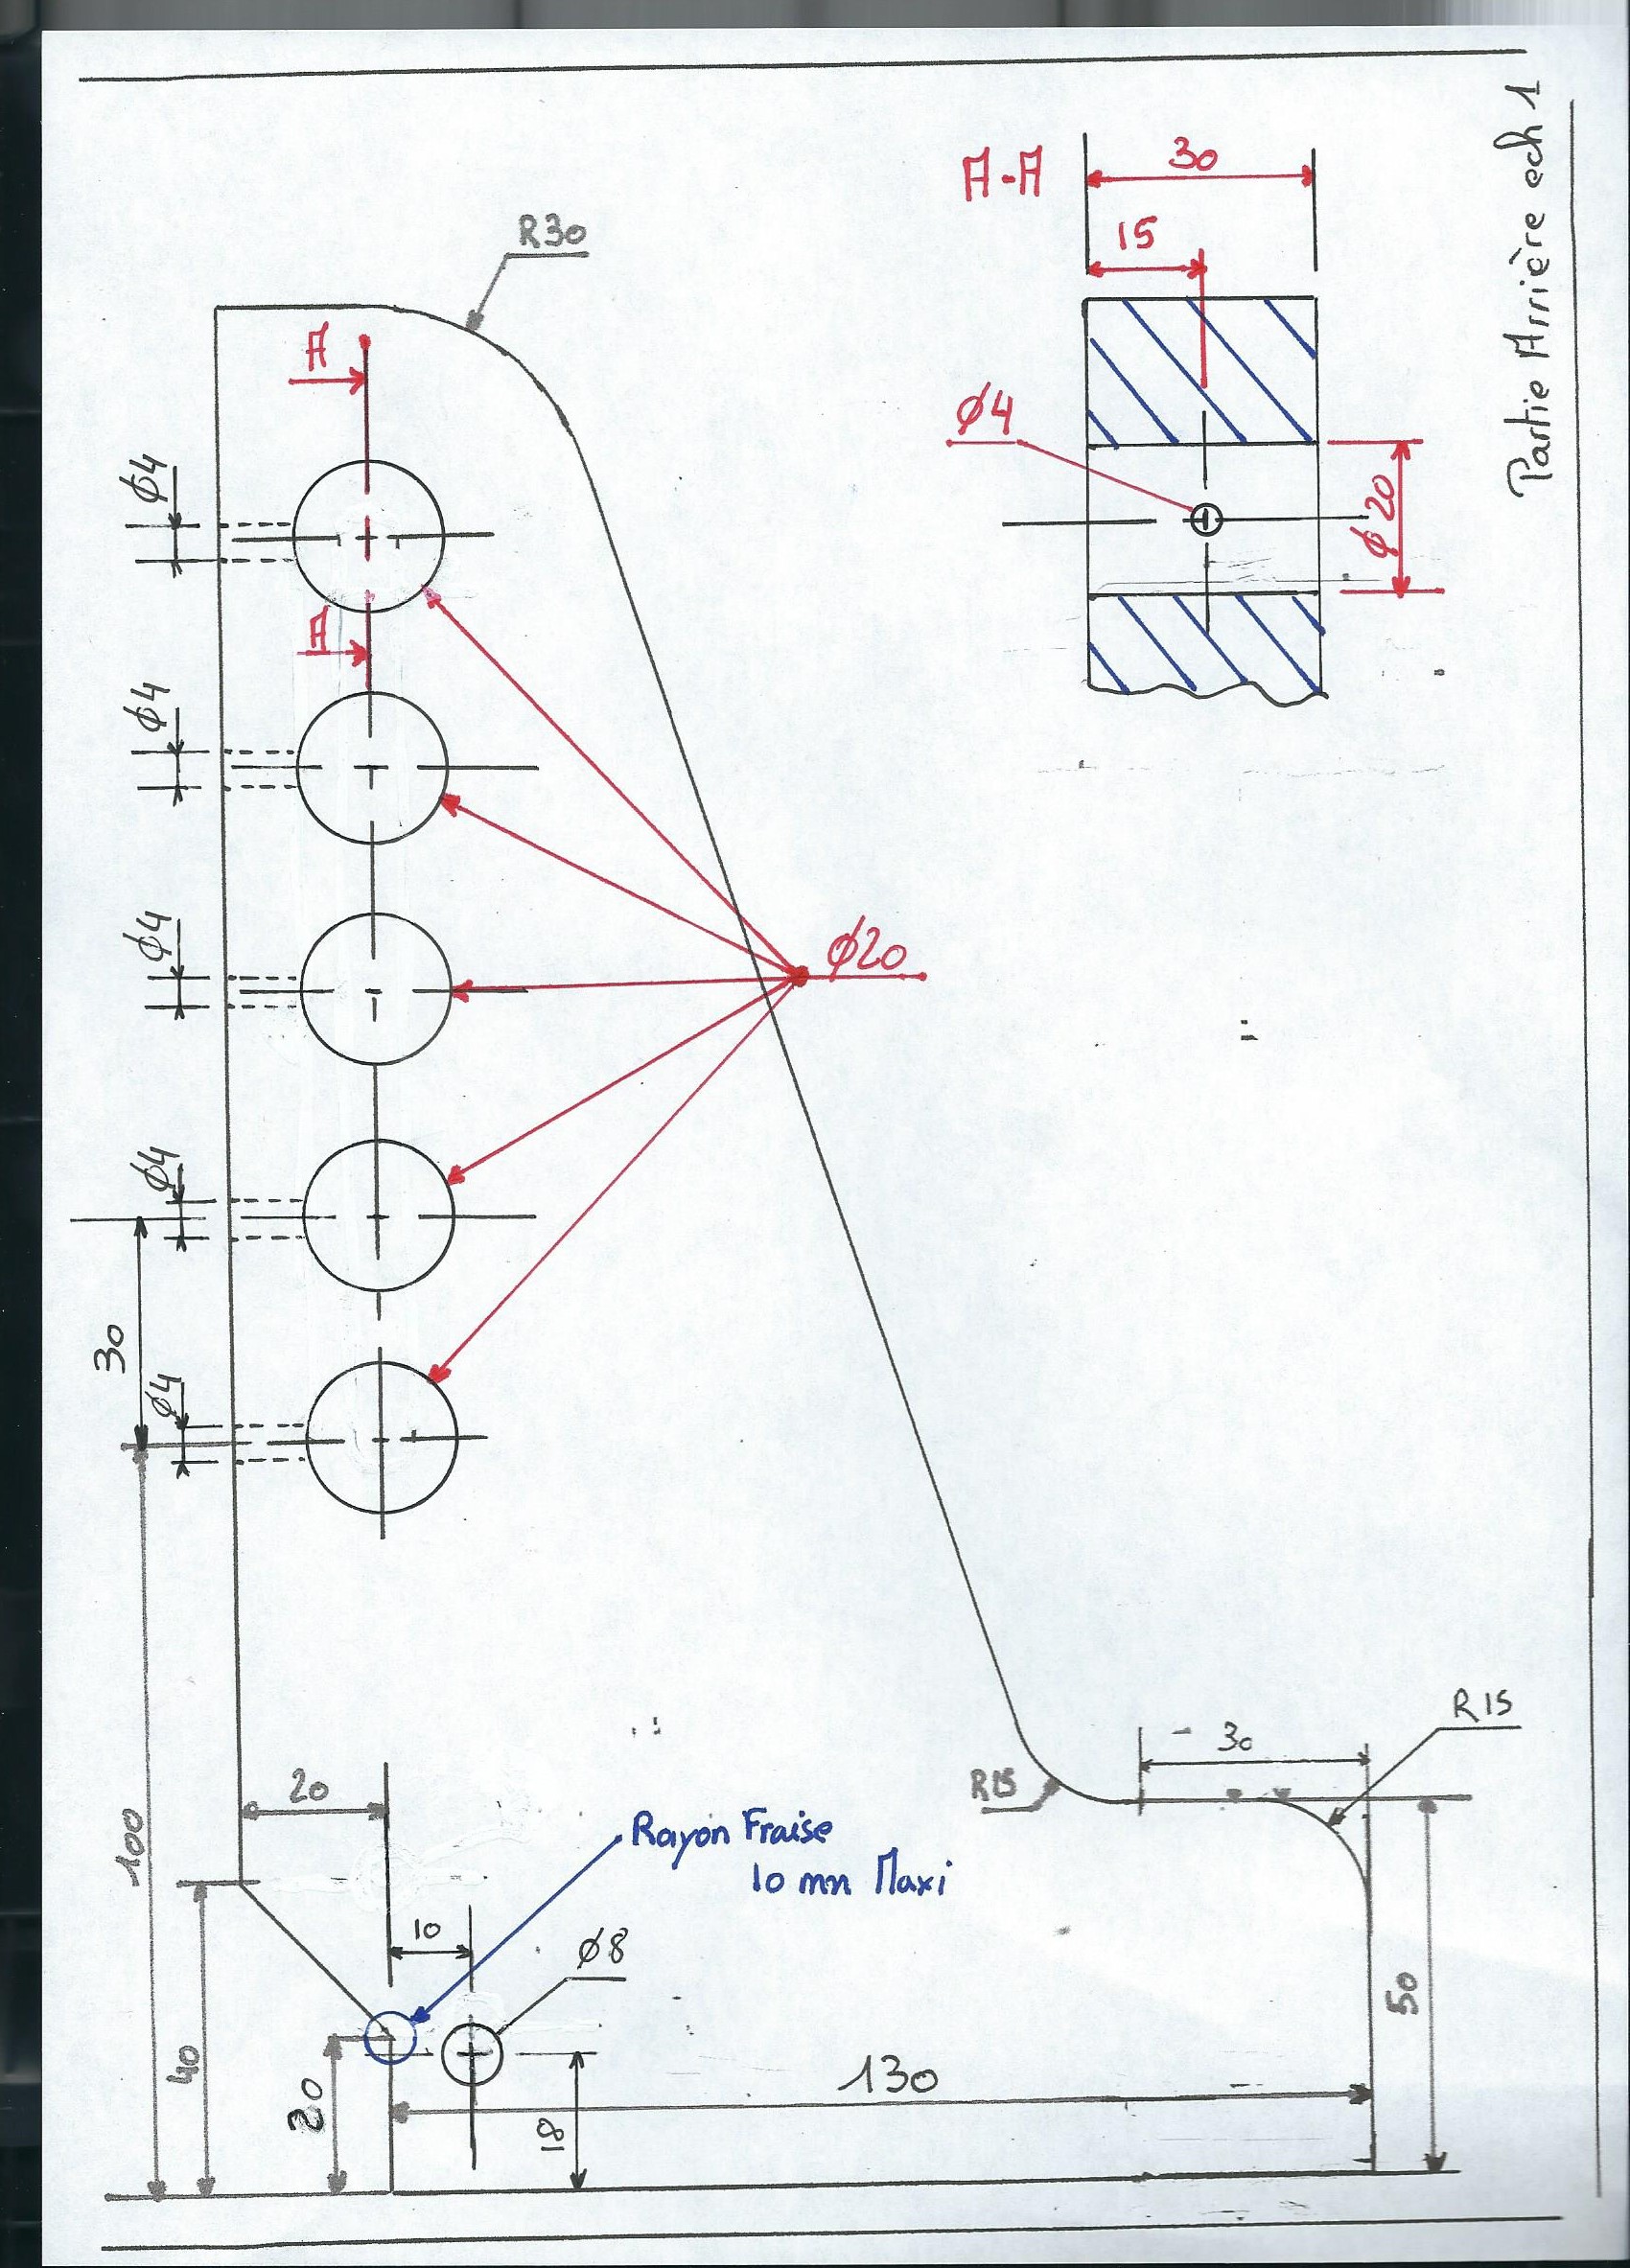 Partie Arrière ech 1
A-A
30
15
R30
A
Ø4
Ø4
Ø20
A
Ø4
Ø4
Ø20
Ø4
30
Ø4
R15
30
R15
20
100
Rayon Fraise
10 mm Maxi
10
Ø8
50
40
130
20
18